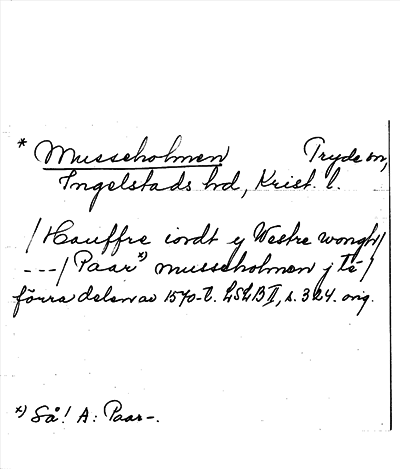 * Musseholmen Tryde sn,
Ingelstads hd, Krist. l.
/Hauffre iordt y Westre wongh/
---/Paar*) musseholmen j tē/
förra delen av 1570-t. LSLB II, s. 324. orig.
*) Så! A: Paar-.